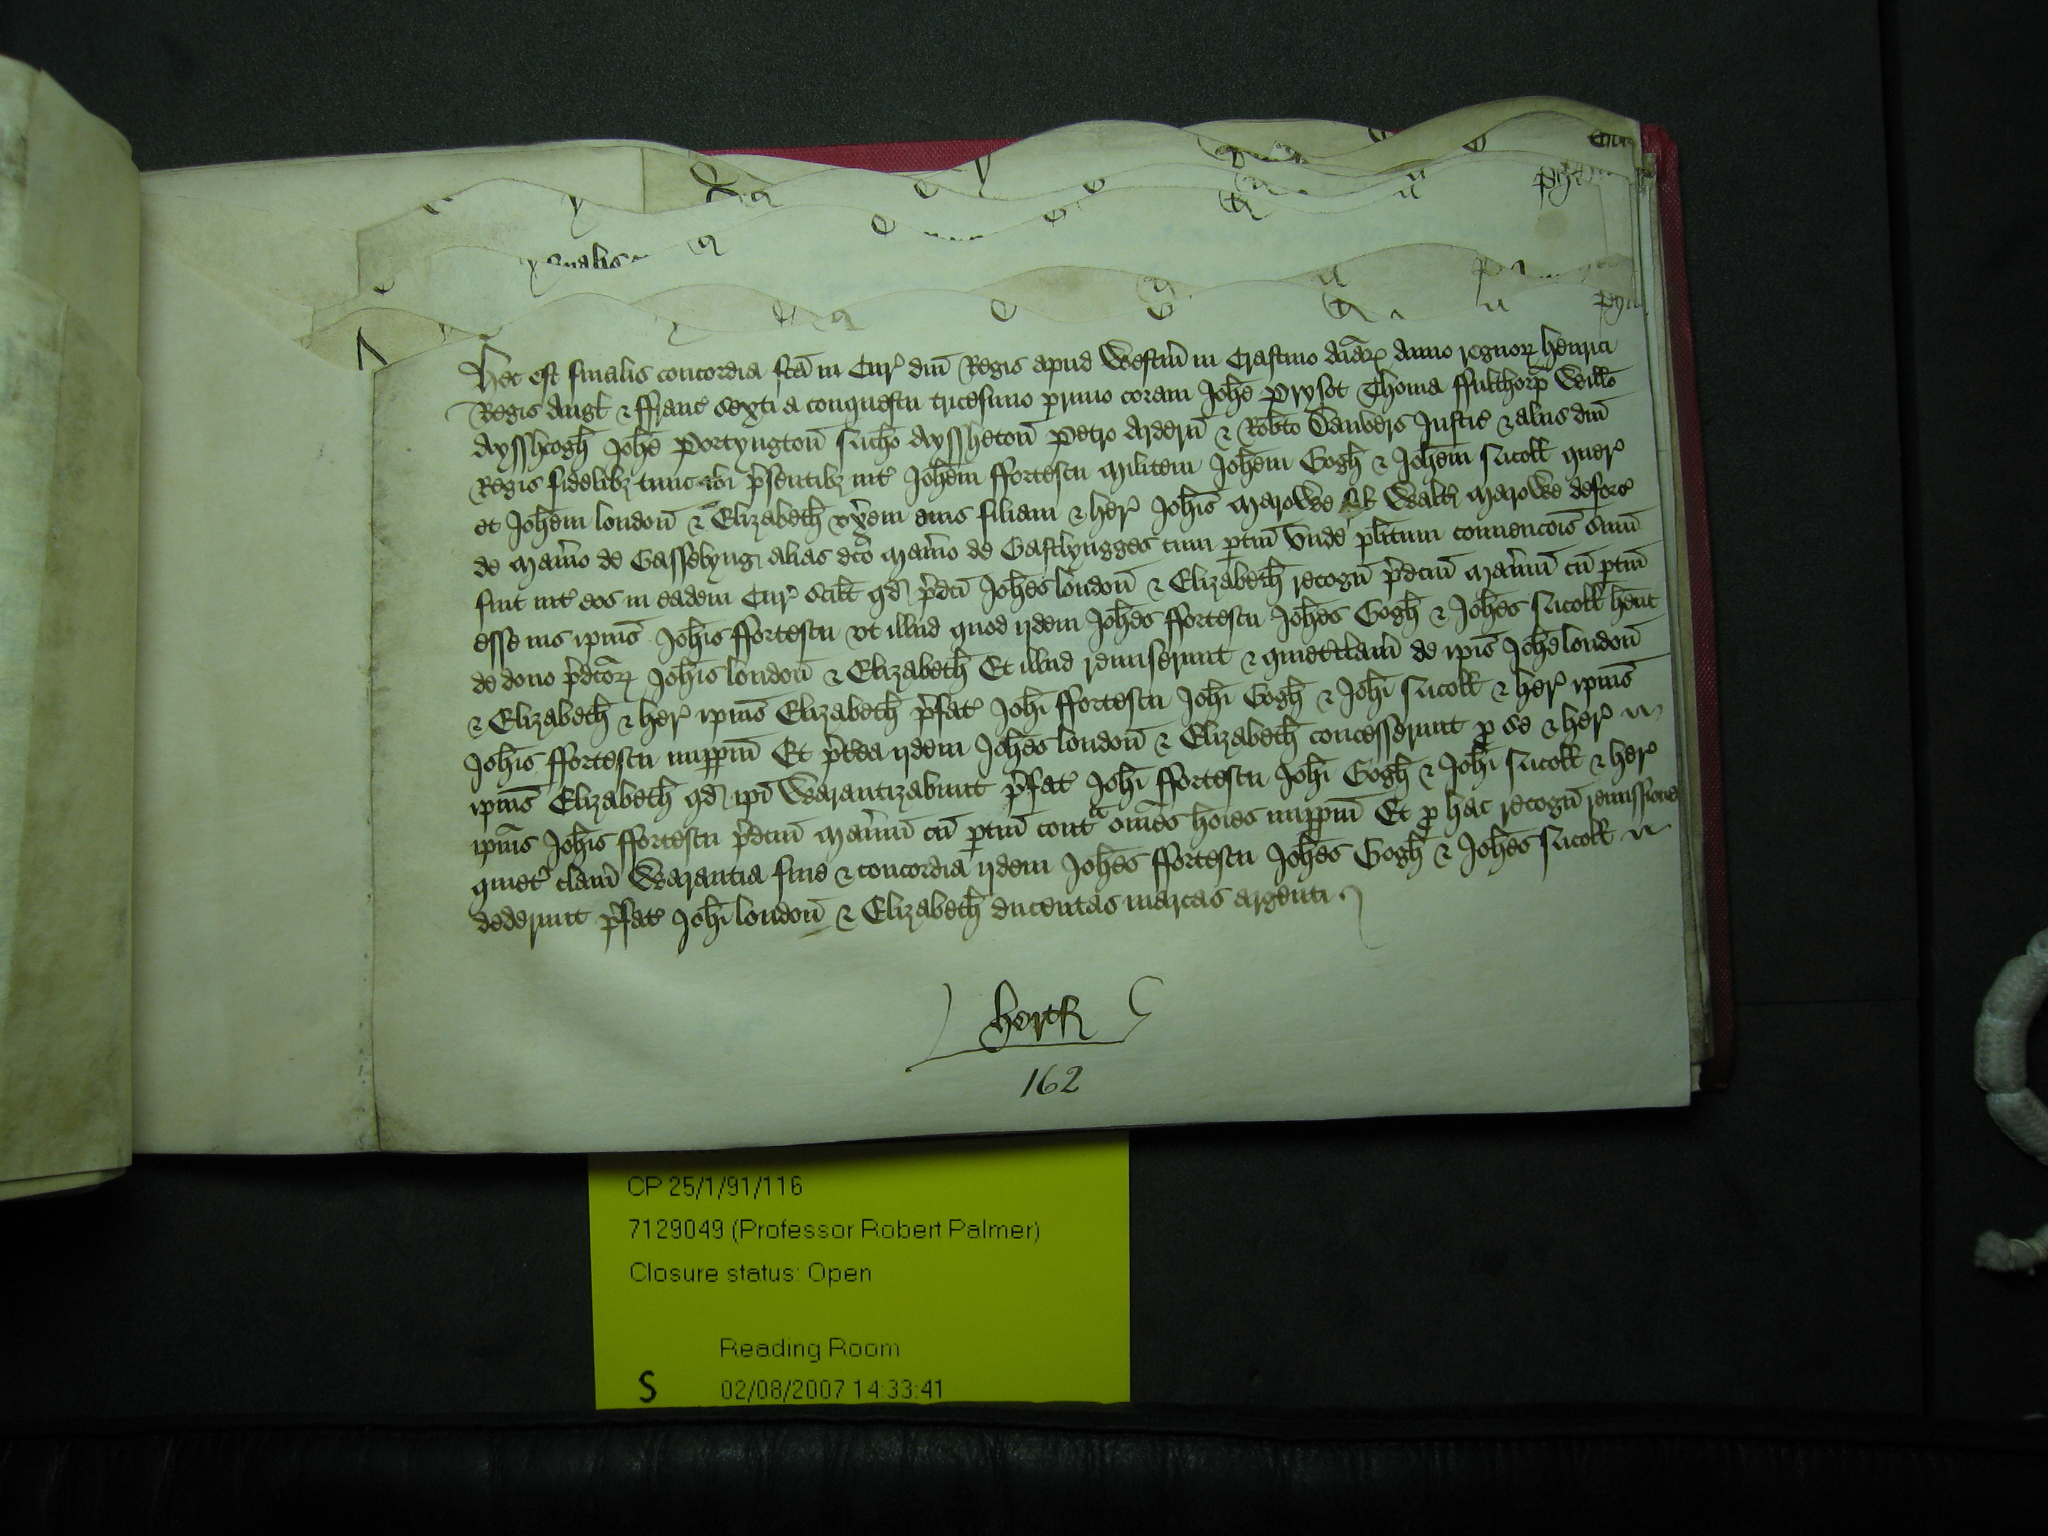 Hec est finalis concordia fcā in Cur̉ dnī Regis apud Westm̄ in Crastino aīaꝝ Anno regnoꝝ Henrici
Regis Angł & ffranc̉ sexti a conquestu tricesimo primo coram Johē Prysot Thoma ffulthorp̄ Willō
Ayssheogh̄ Johē Portyngton̄ Nich̄o Ayssheton̄ Petro Ardern̄ & Rob̄to Danvers Justic̉ & aliis dnī
Regis fidelibꝫ tunc ibi p̉sentibꝫ int̉ Joh̄em ffortescu militem Joh̄em Gogh̄ & Joh̄em Nicoll quer̉
et Joh̄em london̄ & Elizabeth̄ vx̉em eius filiam & her̉ Joh̄is Marowe fil̄ Walt̉i Marowe deforc̉
de Man̉io de Gasselyng alias dc̄o Man̉io de Gastlyngges cum ptin̄ Vnde plītum convencōis sum̄
fuit int̉ eos in eadem Cur̉ Scilt̄ qd̄ p̉dcī Joh̄es london̄ & Elizabeth̄ recogn̄ p̉dcm̄ Man̉ium cū ptin̄
esse ius ipīus Joh̄is ffortescu vt illud quod ijdem Joh̄es ffortescu Joh̄es Gogh̄ & Joh̄es Nicoll hēnt
de dono p̉dcōꝝ Joh̄is london̄ & Elizabeth̄ Et illud remiserunt & quietclam̄ de ipīs Joh̄e london̄
& Elizabeth̄ & her̉ ipīus Elizabeth̄ p̉fat̉ Joh̄i ffortescu Joh̄i Gogh̄ & Joh̄i Nicoll & her̉ ipīus
Joh̄is ffortescu imppm̄ Et p̉tea ijdem Joh̄es london̄ & Elizabeth̄ concesserunt ꝓ se & her̉
ipīus Elizabeth̄ qd̄ ipī Warantizabunt p̉fat̉ Joh̄i ffortescu Joh̄i Gogh̄ & Joh̄i Nicoll & her̉
ipīus Joh̄is ffortescu p̉dcm̄ Man̉ium cū ptin̄ contᵃ om̄es hoīes imppm̄ Et ꝓ hac recogn̄ remissione
quiet̉ clam̄ Warantia fine & concordia ijdem Joh̄es ffortescu Joh̄es Gogh̄ & Joh̄es Nicoll
dederunt p̉fat̉ Joh̄i london̄ & Elizabeth̄ ducentas marcas argenti
Hertf
162
CP 25/1/91/116
7129049 (Professor Robert Palmer)
Closure status: Open
Reading Room
S 02/08/2007 14:33:41